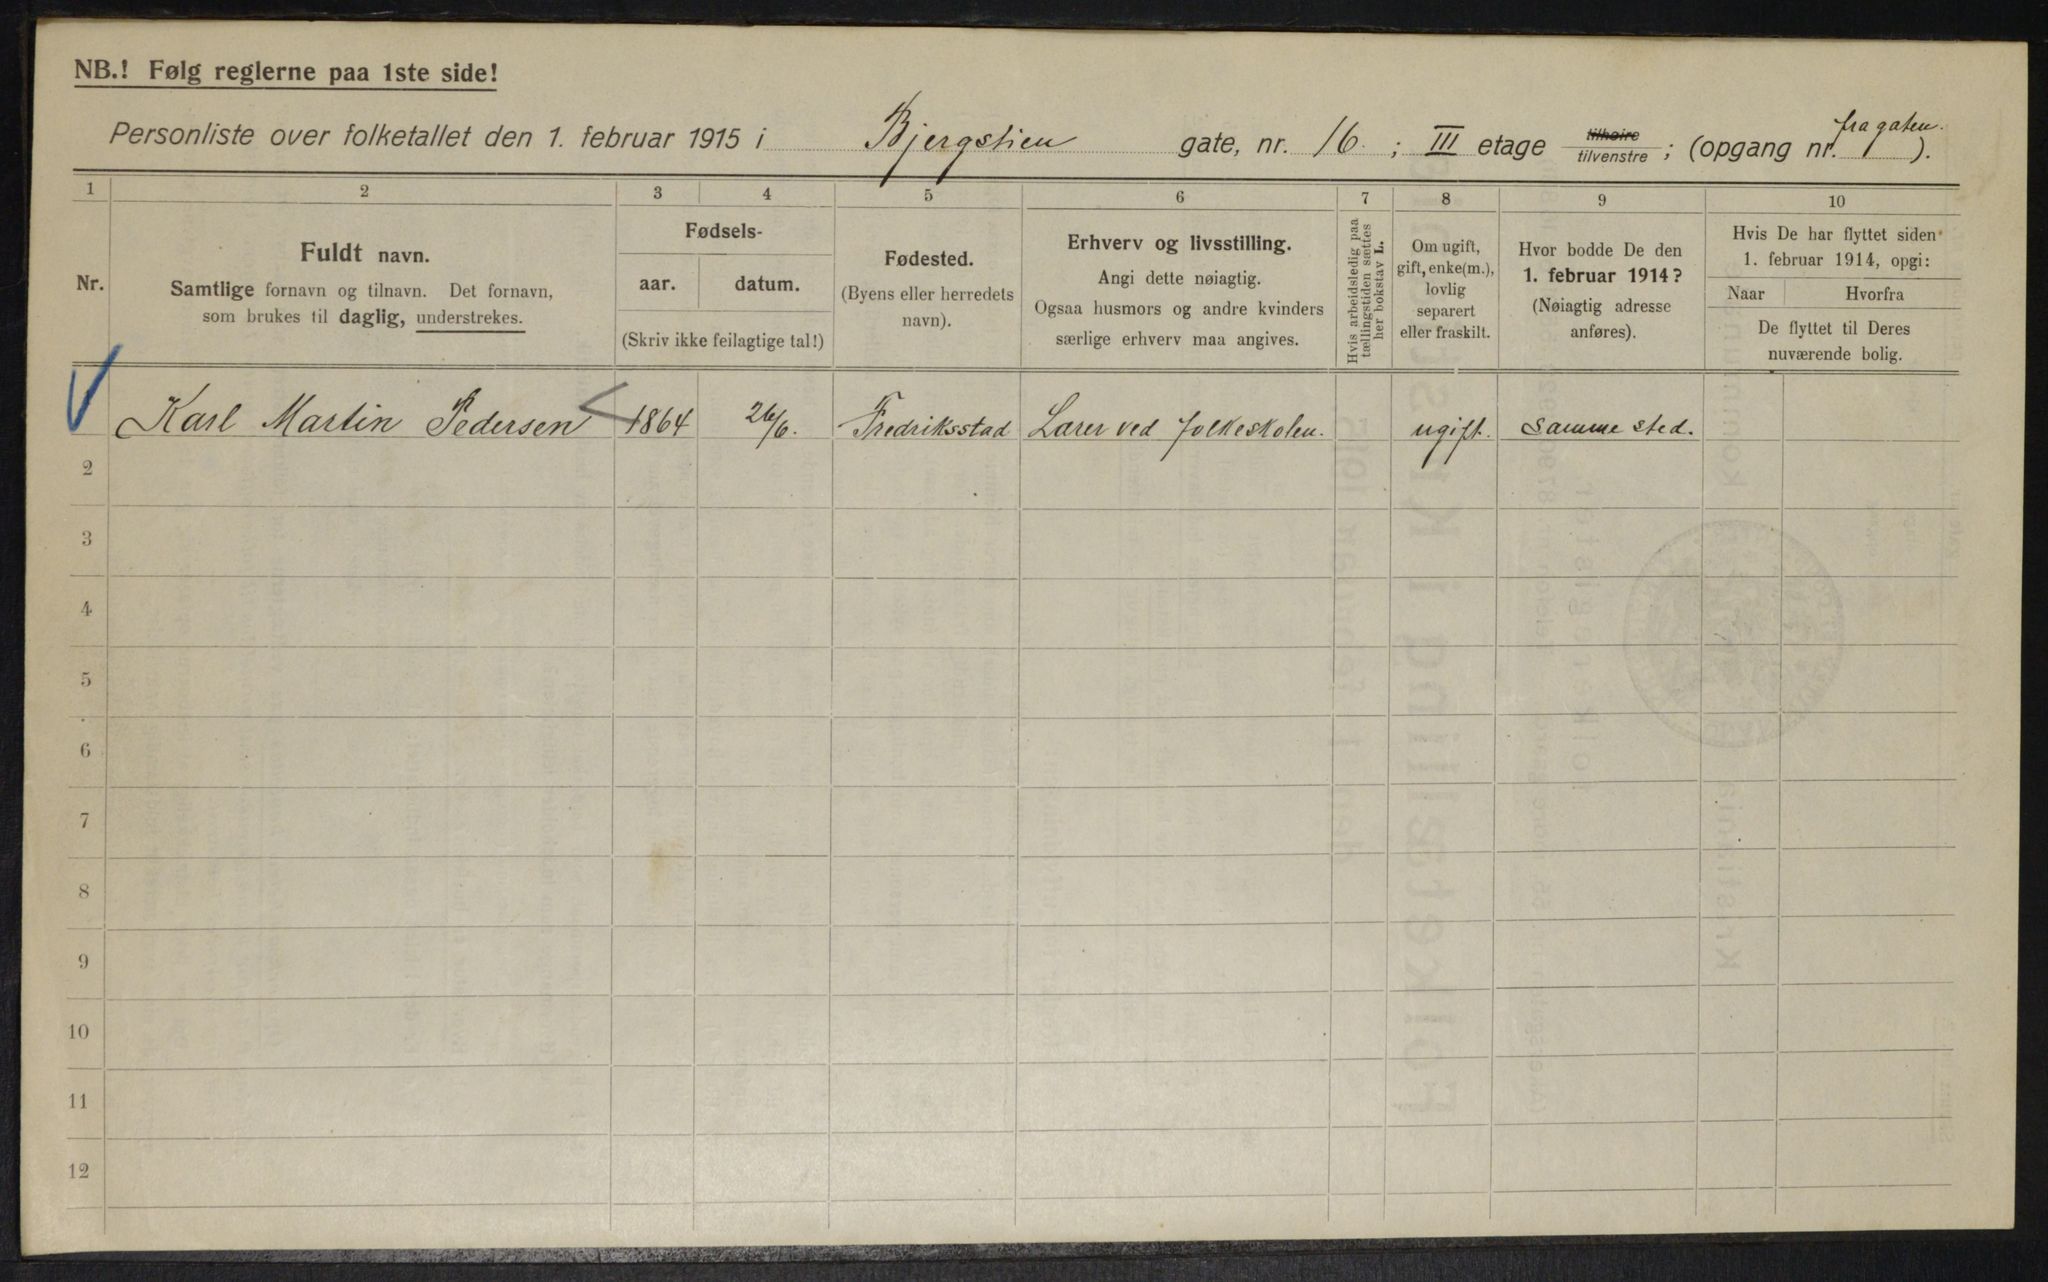 NB.! Følg reglerne paa 1ste side!
Personliste over folketallet den 1. februar 1915 i Bjergstien gate, nr. 16. ; III etage tilhøire tilvenstre ; (opgang nr. fra gaten. ).
1 2 3 4 5 6 7 8 9 10
Nr.
Fuldt navn.
Samtlige fornavn og tilnavn. Det fornavn,
som brukes til daglig, understrekes.
Fødsels-
aar. datum.
(Skriv ikke feilagtige tal!)
Fødested.
(Byens eller herredets
navn).
Erhverv og livsstilling.
Angi dette nøiagtig.
Ogsaa husmors og andre kvinders
særlige erhverv maa angives.
Hvis arbeidsledig paa
tællingstiden sættes
her bokstav L.
Om ugift,
gift, enke(m.),
lovlig
separert
eller fraskilt.
Hvor bodde De den
1. februar 1914?
(Nøiagtig adresse
anføres).
Hvis De har flyttet siden
1. februar 1914, opgi:
Naar Hvorfra
De flyttet til Deres
nuværende bolig.
Karl Martin Pedersen 1864 26/6. Fredriksstad Lærer ved folkeskolen. ugift. samme sted.
2
3
4
5
6
7
8
9
10
11
12